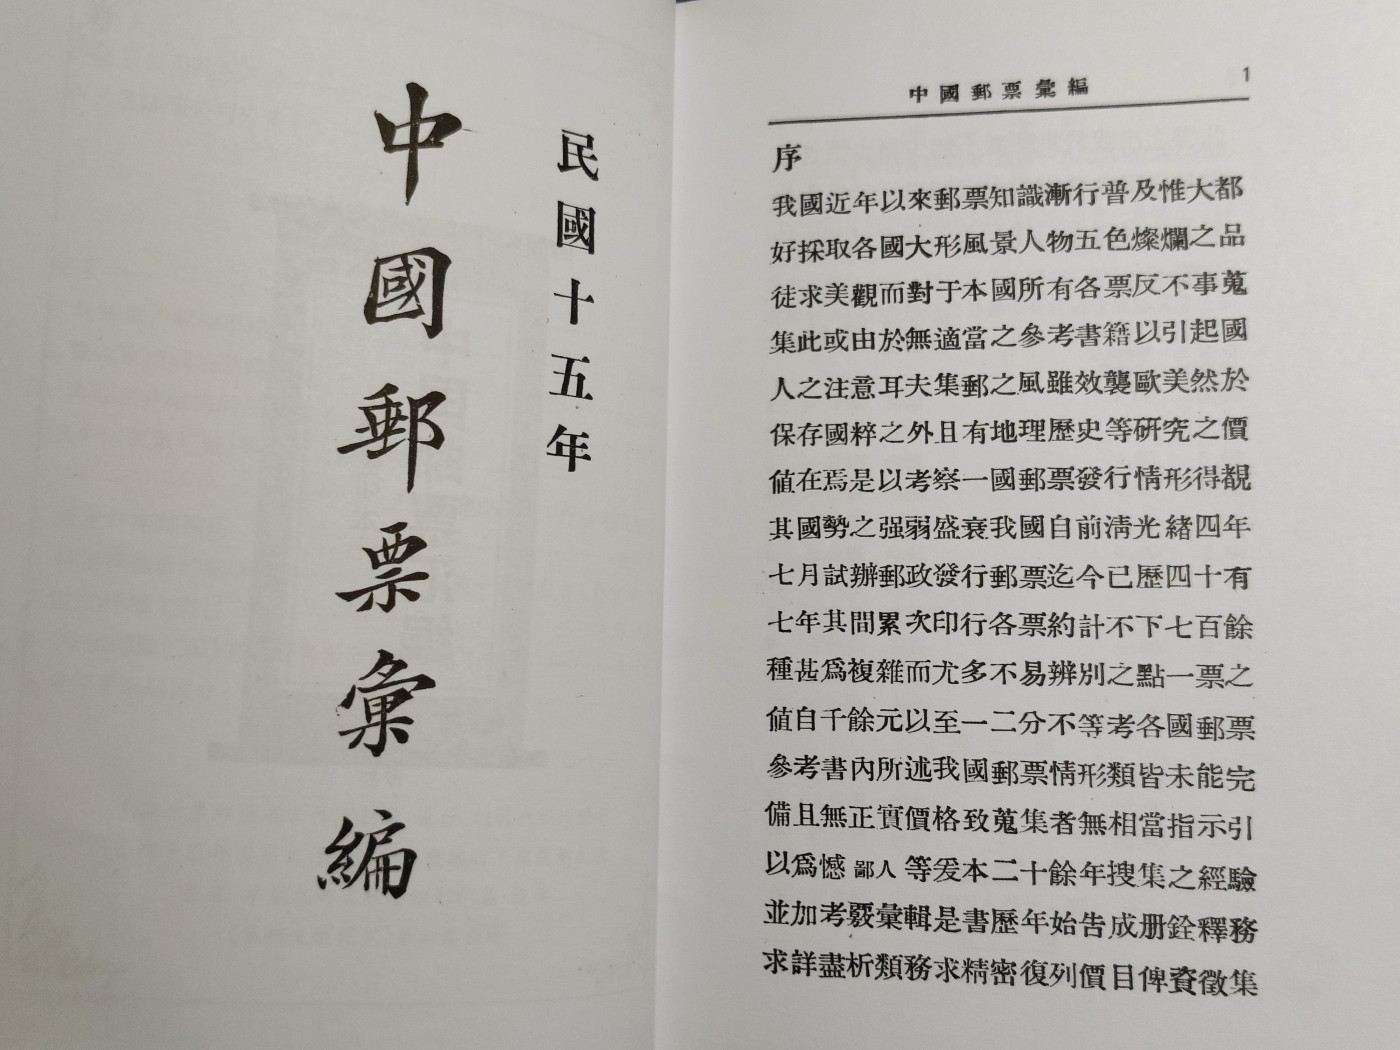 中國郵票彙編
民國十五年
中國郵票彙編
1
序
我國近年以來郵票知識漸行普及惟大都
好採取各國大形風景人物五色燦爛之品
徒求美觀而對于本國所有各票反不事蒐
集此或由於無適當之參考書籍以引起國
人之注意耳夫集郵之風雖效襲歐美然於
保存國粹之外且有地理歷史等研究之價
値在焉是以考察一國郵票發行情形得覩
其國勢之强弱盛衰我國自前淸光緒四年
七月試辦郵政發行郵票迄今已歷四十有
七年其間累次印行各票約計不下七百餘
種甚爲複雜而尤多不易辨別之點一票之
値自千餘元以至一二分不等考各國郵票
參考書內所述我國郵票情形類皆未能完
備且無正實價格致蒐集者無相當指示引
以爲憾鄙人等爰本二十餘年搜集之經驗
並加考覈彙輯是書歷年始告成册銓釋務
求詳盡析類務求精密復列價目俾資徵集